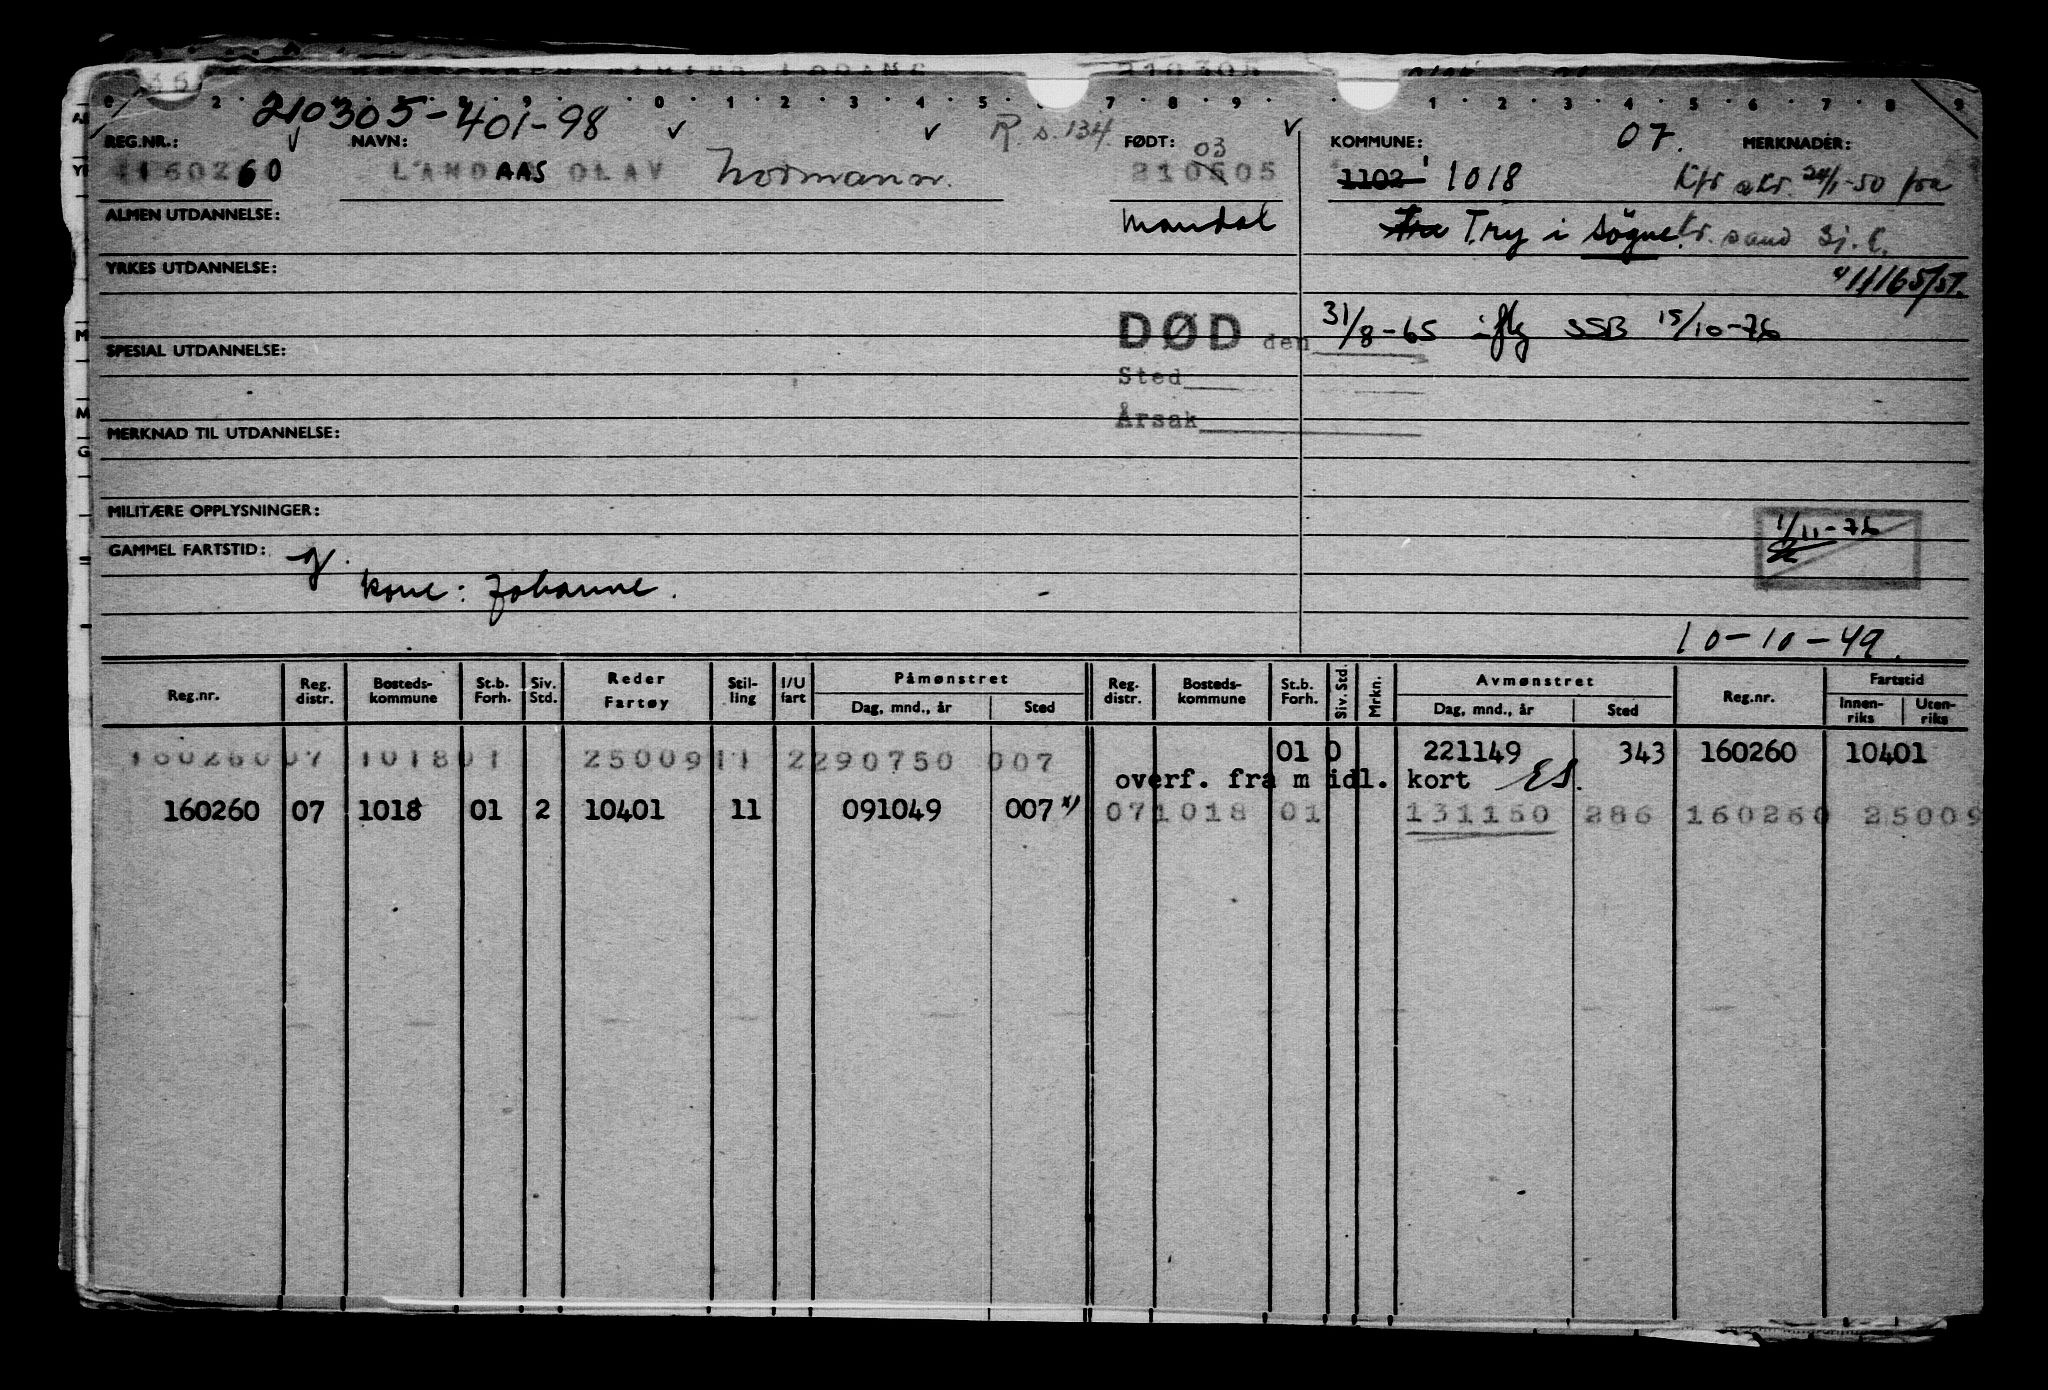 210305
210305-401-98
R s. 134.
07.
REG.NR.: NAVN: FØDT: KOMMUNE: MERKNADER:
03
160260 LANDAAS OLAV Normann. 210505 1102 1018 Kfr skr. 24/1-50 fra
ALMEN UTDANNELSE: Mandal fra Try i Søgne kr. sand Sj. k.
YRKES UTDANNELSE: 41/165/51.
DØD den 31/8-65 iflg SSB 15/10-76
SPESIAL UTDANNELSE:
Sted
Årsak
MERKNAD TIL UTDANNELSE:
MILITÆRE OPPLYSNINGER:
1/11-76
GAMMEL FARTSTID: g.
kone: Johanne.
10-10-49.
Reg.nr. Reg. distr. Bosteds-kommune St.b. Forh. Siv. Std. Reder Fartøy Stil-ling I/U fart Påmønstret Dag, mnd., år Sted Reg. distr. Bosteds-kommune St.b. Forh. Siv. Std. Mrkn. Avmønstret Dag, mnd., år Sted Reg.nr. Fartstid Innen-riks Uten-riks
160260 07 1018 01 25009 11 2 290750 007 01 0 221149 343 160260 10401
overf. fra midl. kort ES.
160260 07 1018 01 2 10401 11 091049 007 x) 07 1018 01 131150 286 160260 25009